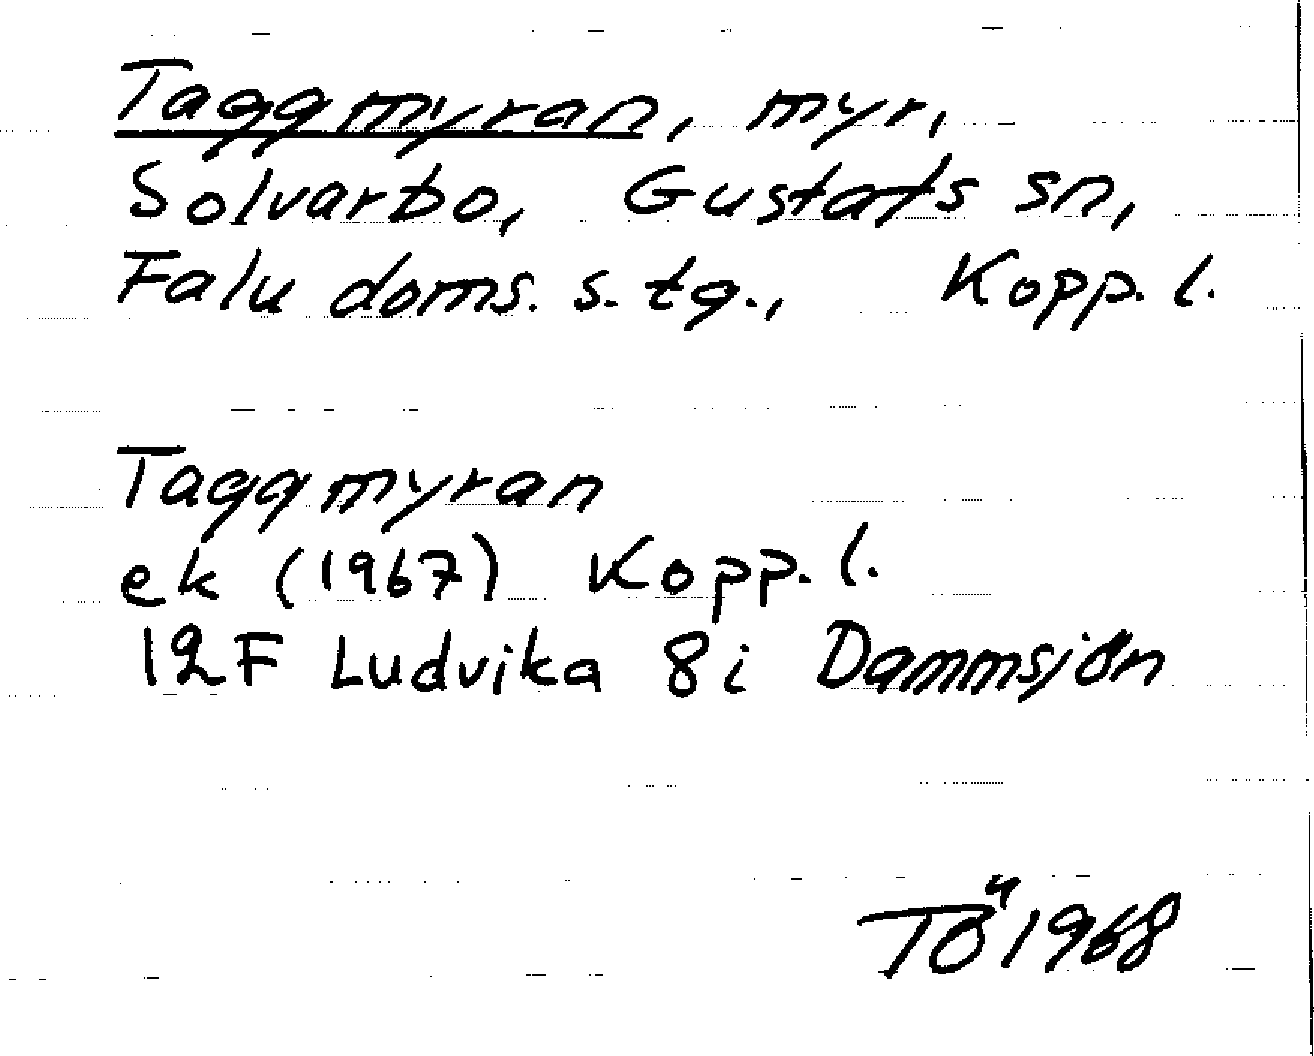 Taggmyran, myr,
Solvarbo, Gustafs sn,
Falu doms. s. tg., Kopp. l.
Taggmyran
ek (1967) Kopp. l.
12F Ludvika 8i Dammsjön
TÖ 1968